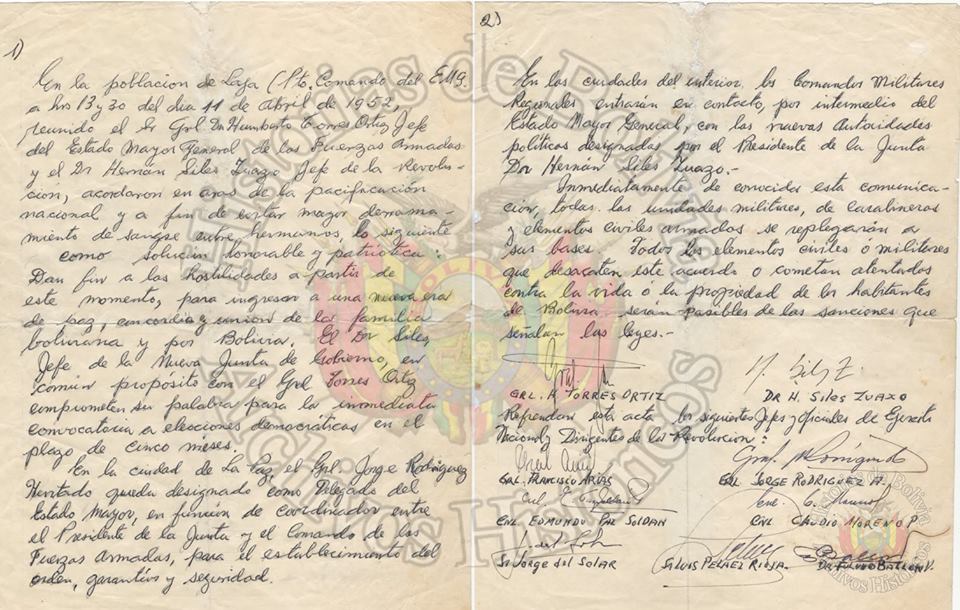 1)
En la poblacion de Laja (Pto. Comando del EMG.
a hrs 13 y 30 del dia 11 de abril de 1952,
reunido el Sr Gral Dn Humberto Torres Ortiz, Jefe
del Estado Mayor General de las Fuerzas Armadas
y el Dr Hernán Siles Zuazo Jefe de la Revolu-
cion, acordaron en aras de la pacificación
nacional y a fin de evitar mayor derrama-
miento de sangre entre hermanos, lo siguiente
como solucion honorable y patriotica:
Dan fin a las hostilidades a partir de
este momento, para ingresar a una nueva era
de paz, concordia y union de la familia
boliviana y por Bolivia. El Dr Siles,
Jefe de la Nueva Junta de Gobierno, en
común proposito con el Gral Torres Ortiz
comprometen su palabra para la inmediata
convocatoria a elecciones democráticas en el
plazo de cinco meses.
En la ciudad de La Paz, el Gral Jorge Rodriguez
Hurtado queda designado como Delegado del
Estado Mayor, en función de coordinador entre
el Presidente de la Junta y el Comando de las
Fuerzas Armadas, para el establecimiento del
orden, garantias y seguridad.
2)
En las ciudades del interior, los Comandos Militares
Regionales entrarán en contacto, por intermedio del
Estado Mayor General, con las nuevas Autoridades
politicas designadas por el Presidente de la Junta
Dor Hernán Siles Zuazo.-
Inmediatamente de conocida esta comunica-
cion, todas las unidades militares, de carabineros
y elementos civiles armados se replegarán a
sus bases. Todos los elementos civiles ó militares
que desacaten este acuerdo o cometan atentados
contra la vida ó la propiedad de los habitantes
de Bolivia serán pasibles de las sanciones que
señalan las leyes.-
H. Siles Z.
GRL. H. TORRES ORTIZ
DR H. SILES ZUAZO
Refrendan esta acta los siguientes Jefes y oficiales de Ejercito
Nacional y Dirigentes de la Revolucion:
GRAL. FRANCISCO ARIAS
GRL JORGE RODRIGUEZ H.
CNL. EDMUNDO PAZ SOLDAN
CNL CLAUDIO MORENO P.
Sr JORGE del SOLAR
SR LUIS PELAEZ RIOJA
DR
Historias de Bolivia
Archivos Históricos
Historias de Bolivia
Archivos Históricos